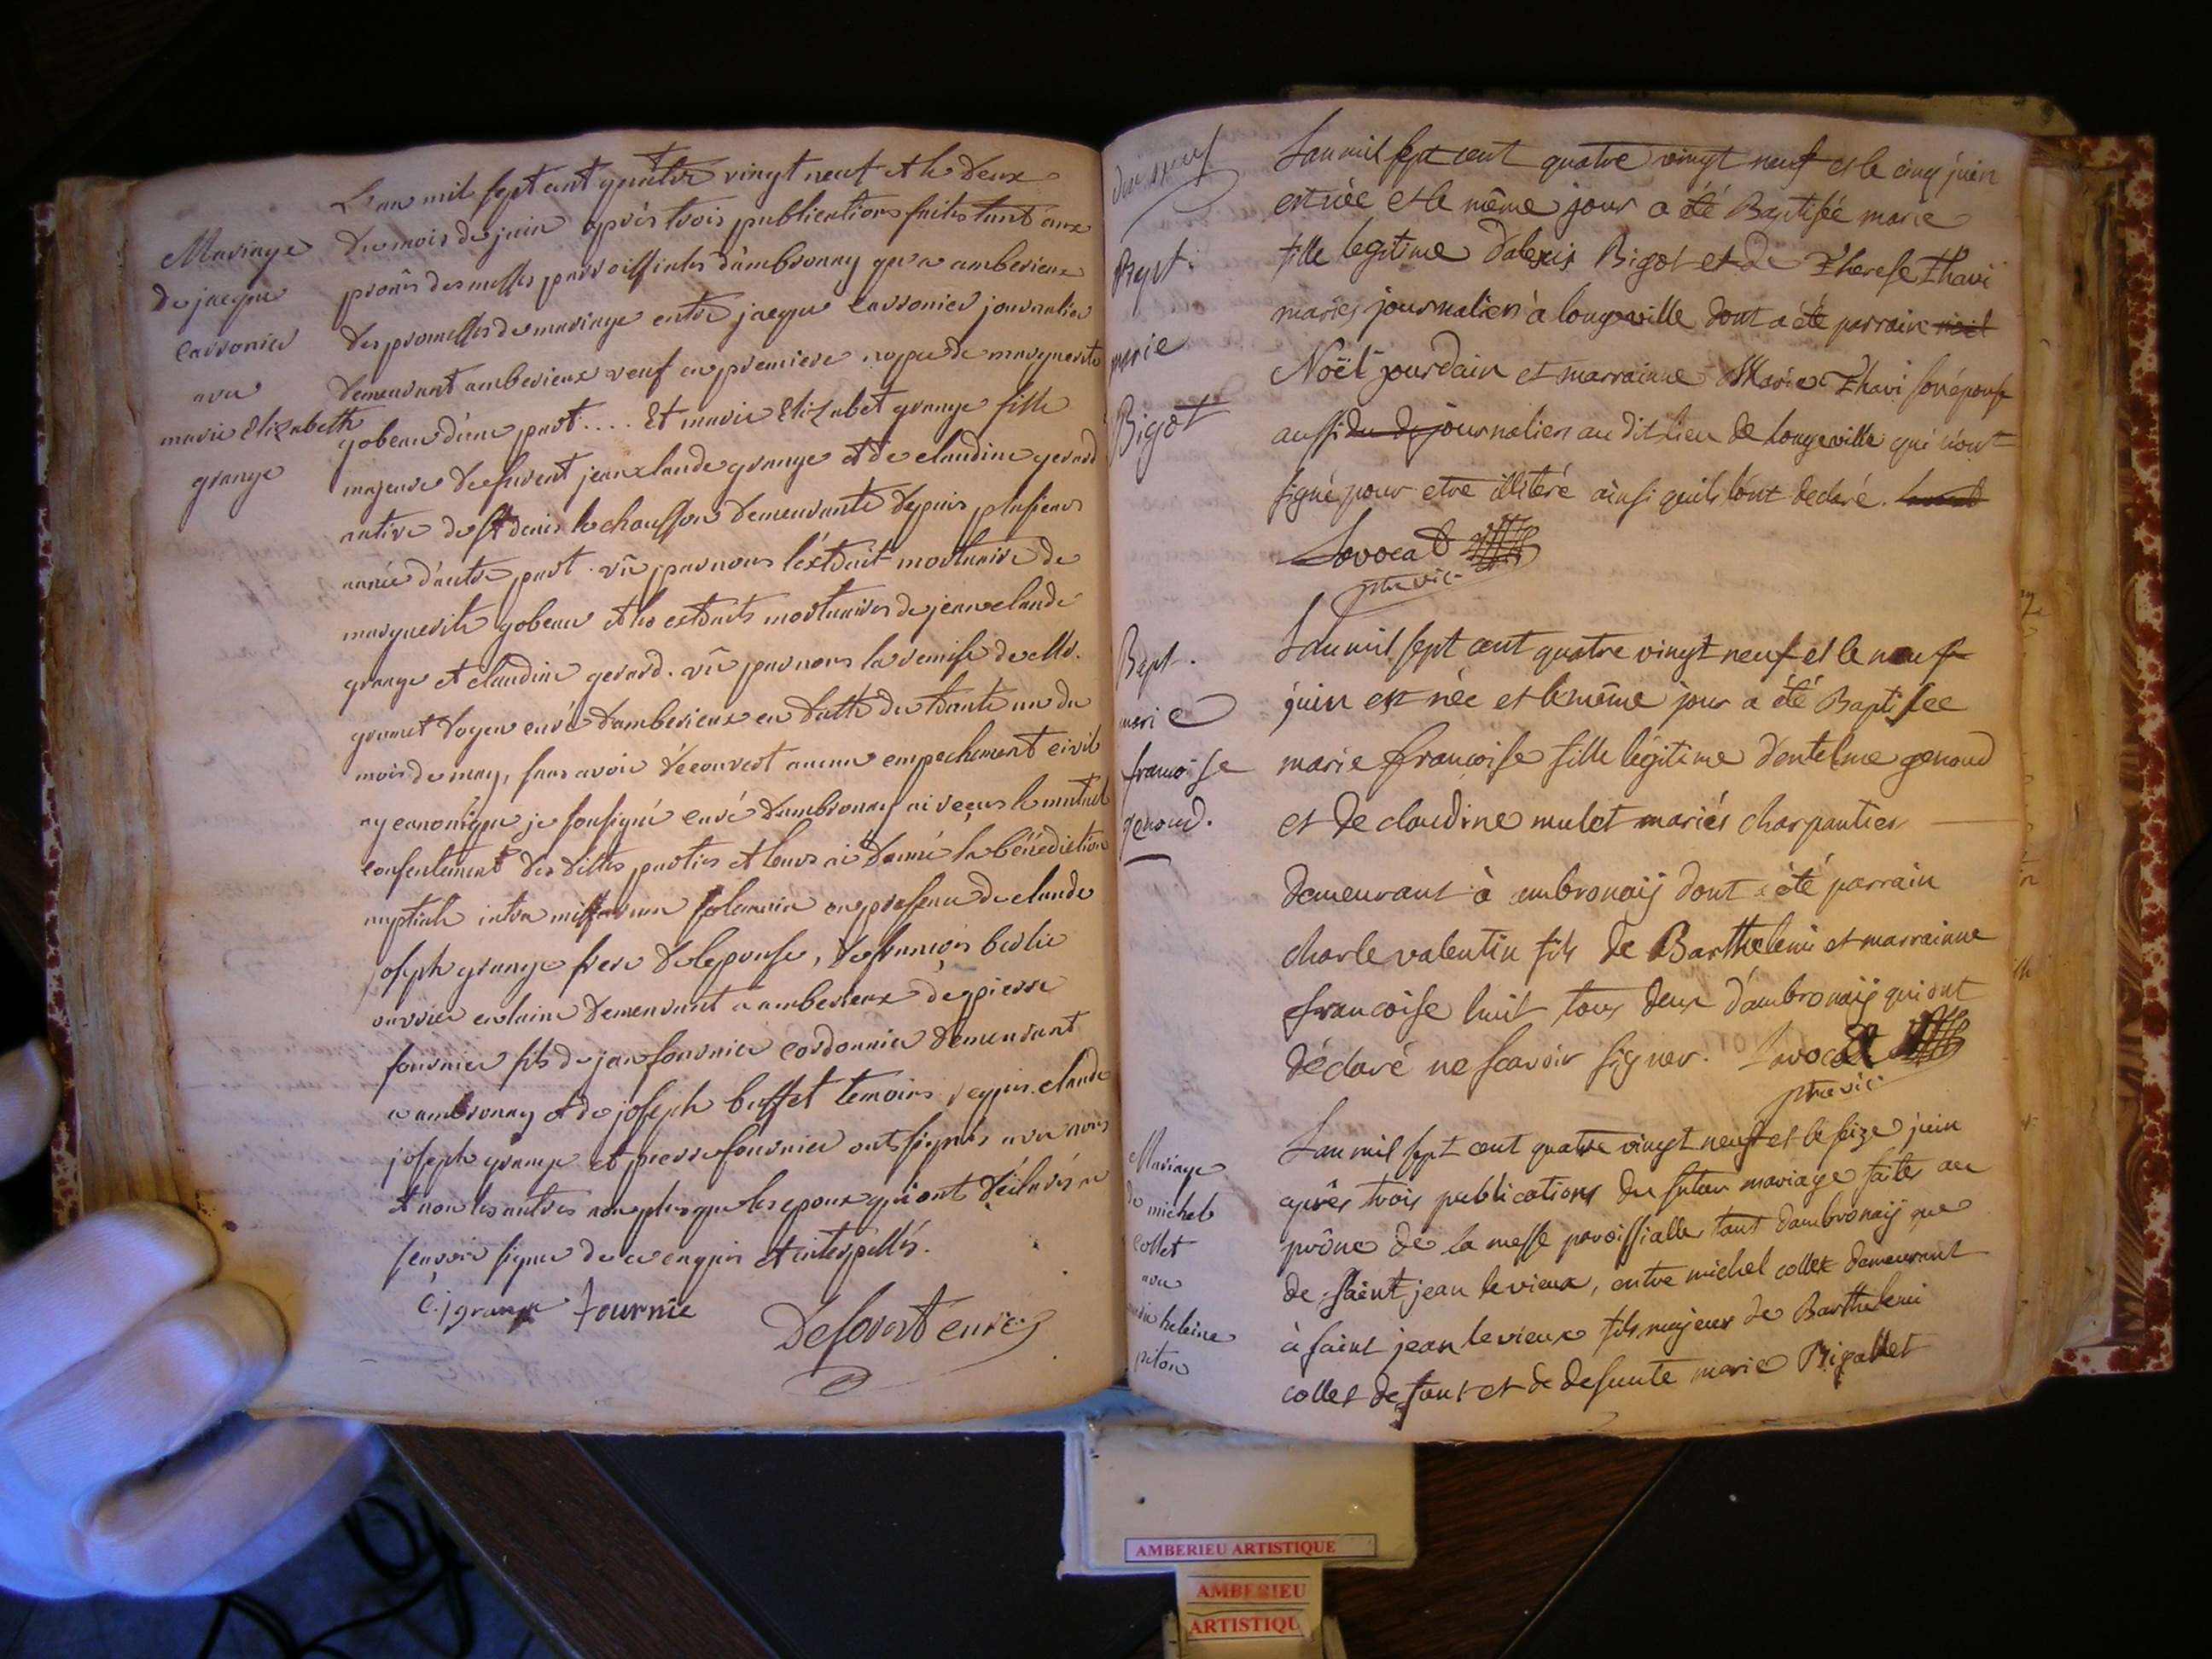 Mariage
de jacque
carronier
avec
marie Elizabeth
grange
L'an mil sept cent quatre vingt neuf et le deux
du mois de juin après trois publications faites tant aux
prônes des messes parroissiales d'ambronay que a amberieux
des promesses de mariage entre jacque carronier journalier
demeurant amberieux veuf en premiere noppce de marguerite
gobeau d'une part .... Et marie Elizabet grange fille
majeure de defunt jean claude grange et de claudine gerard
native de St denis le chausson demeurante depuis plusieurs
année d'autre part. vû par nous l'extrait mortuaire de
marguerite gobeau et les extraits mortuaires de jean claude
grange et claudine gerard. vû par nous la remise de Mr.
gramet doyen curé d'amberieux en datte du trante un du
mois de may, sans avoir découvert aucun empechement civil
ny canonique je soussigné curé d'ambronay ai reçus le mutuel
consentement des dittes parties et leurs ai donné la bénédiction
nuptiale intra missarum solemnia en presence de claude
joseph grange frere de l'epouse, de françois
ouvrier en laine demeurant a amberieux de pierre
fournier fils de jean fournier cordonnier demeurant
a ambronay et de joseph buffet temoins requis. claude
joseph grange et pierre fournier onts signés avec nous
et non les autres non plus que les epoux qui ont déclarés ne
scavoir signer de ce enquis et interpellés.
C. j grange fournie
Desforet curé
dix neuf
Bapt.
marie
Bigot
L'an mil sept cent quatre vingt neuf et le cinq juin
est née et le même jour a été Baptisée marie
fille legitime d'alexis Bigot et de Therese Thavi
mariés journaliers à longeville dont a été parrain noel
Noël jourdain et marrainne Marie Thavi son épouse
aussi du dt journalier au dit lieu de longeville qui n'ont
signé pour etre illitéré ainsi quils l'ont declaré. Lavocat
Lavocat
ptre vic.
Bapt.
marie
francoise
genoud.
L'an mil sept cent quatre vingt neuf et le neuf
juin est née et le même jour a été Baptisée
marie françoise fille légitime d'antelme genoud
et de claudine mulet mariés charpantier
demeurant à ambronaÿ dont a été parrain
charle valentin fils de Barthelemi et marrainne
francoise huit tous deux d'ambronaÿ qui ont
déclaré ne scavoir signer. Lavocat
ptre vic.
Mariage
de michel
collet
avec
heleine
piton
L'an mil sept cent quatre vingt neuf et le seize juin
après trois publications du futur mariage faites au
prône de la messe paroissialle, tant dambronaÿ que
de saint jean le vieux, entre michel collet demeurant
à saint jean le vieux fils majeur de Barthelemi
collet defunt et de defunte marie Rigollet
AMBERIEU ARTISTIQUE
AMBERIEU
ARTISTIQU